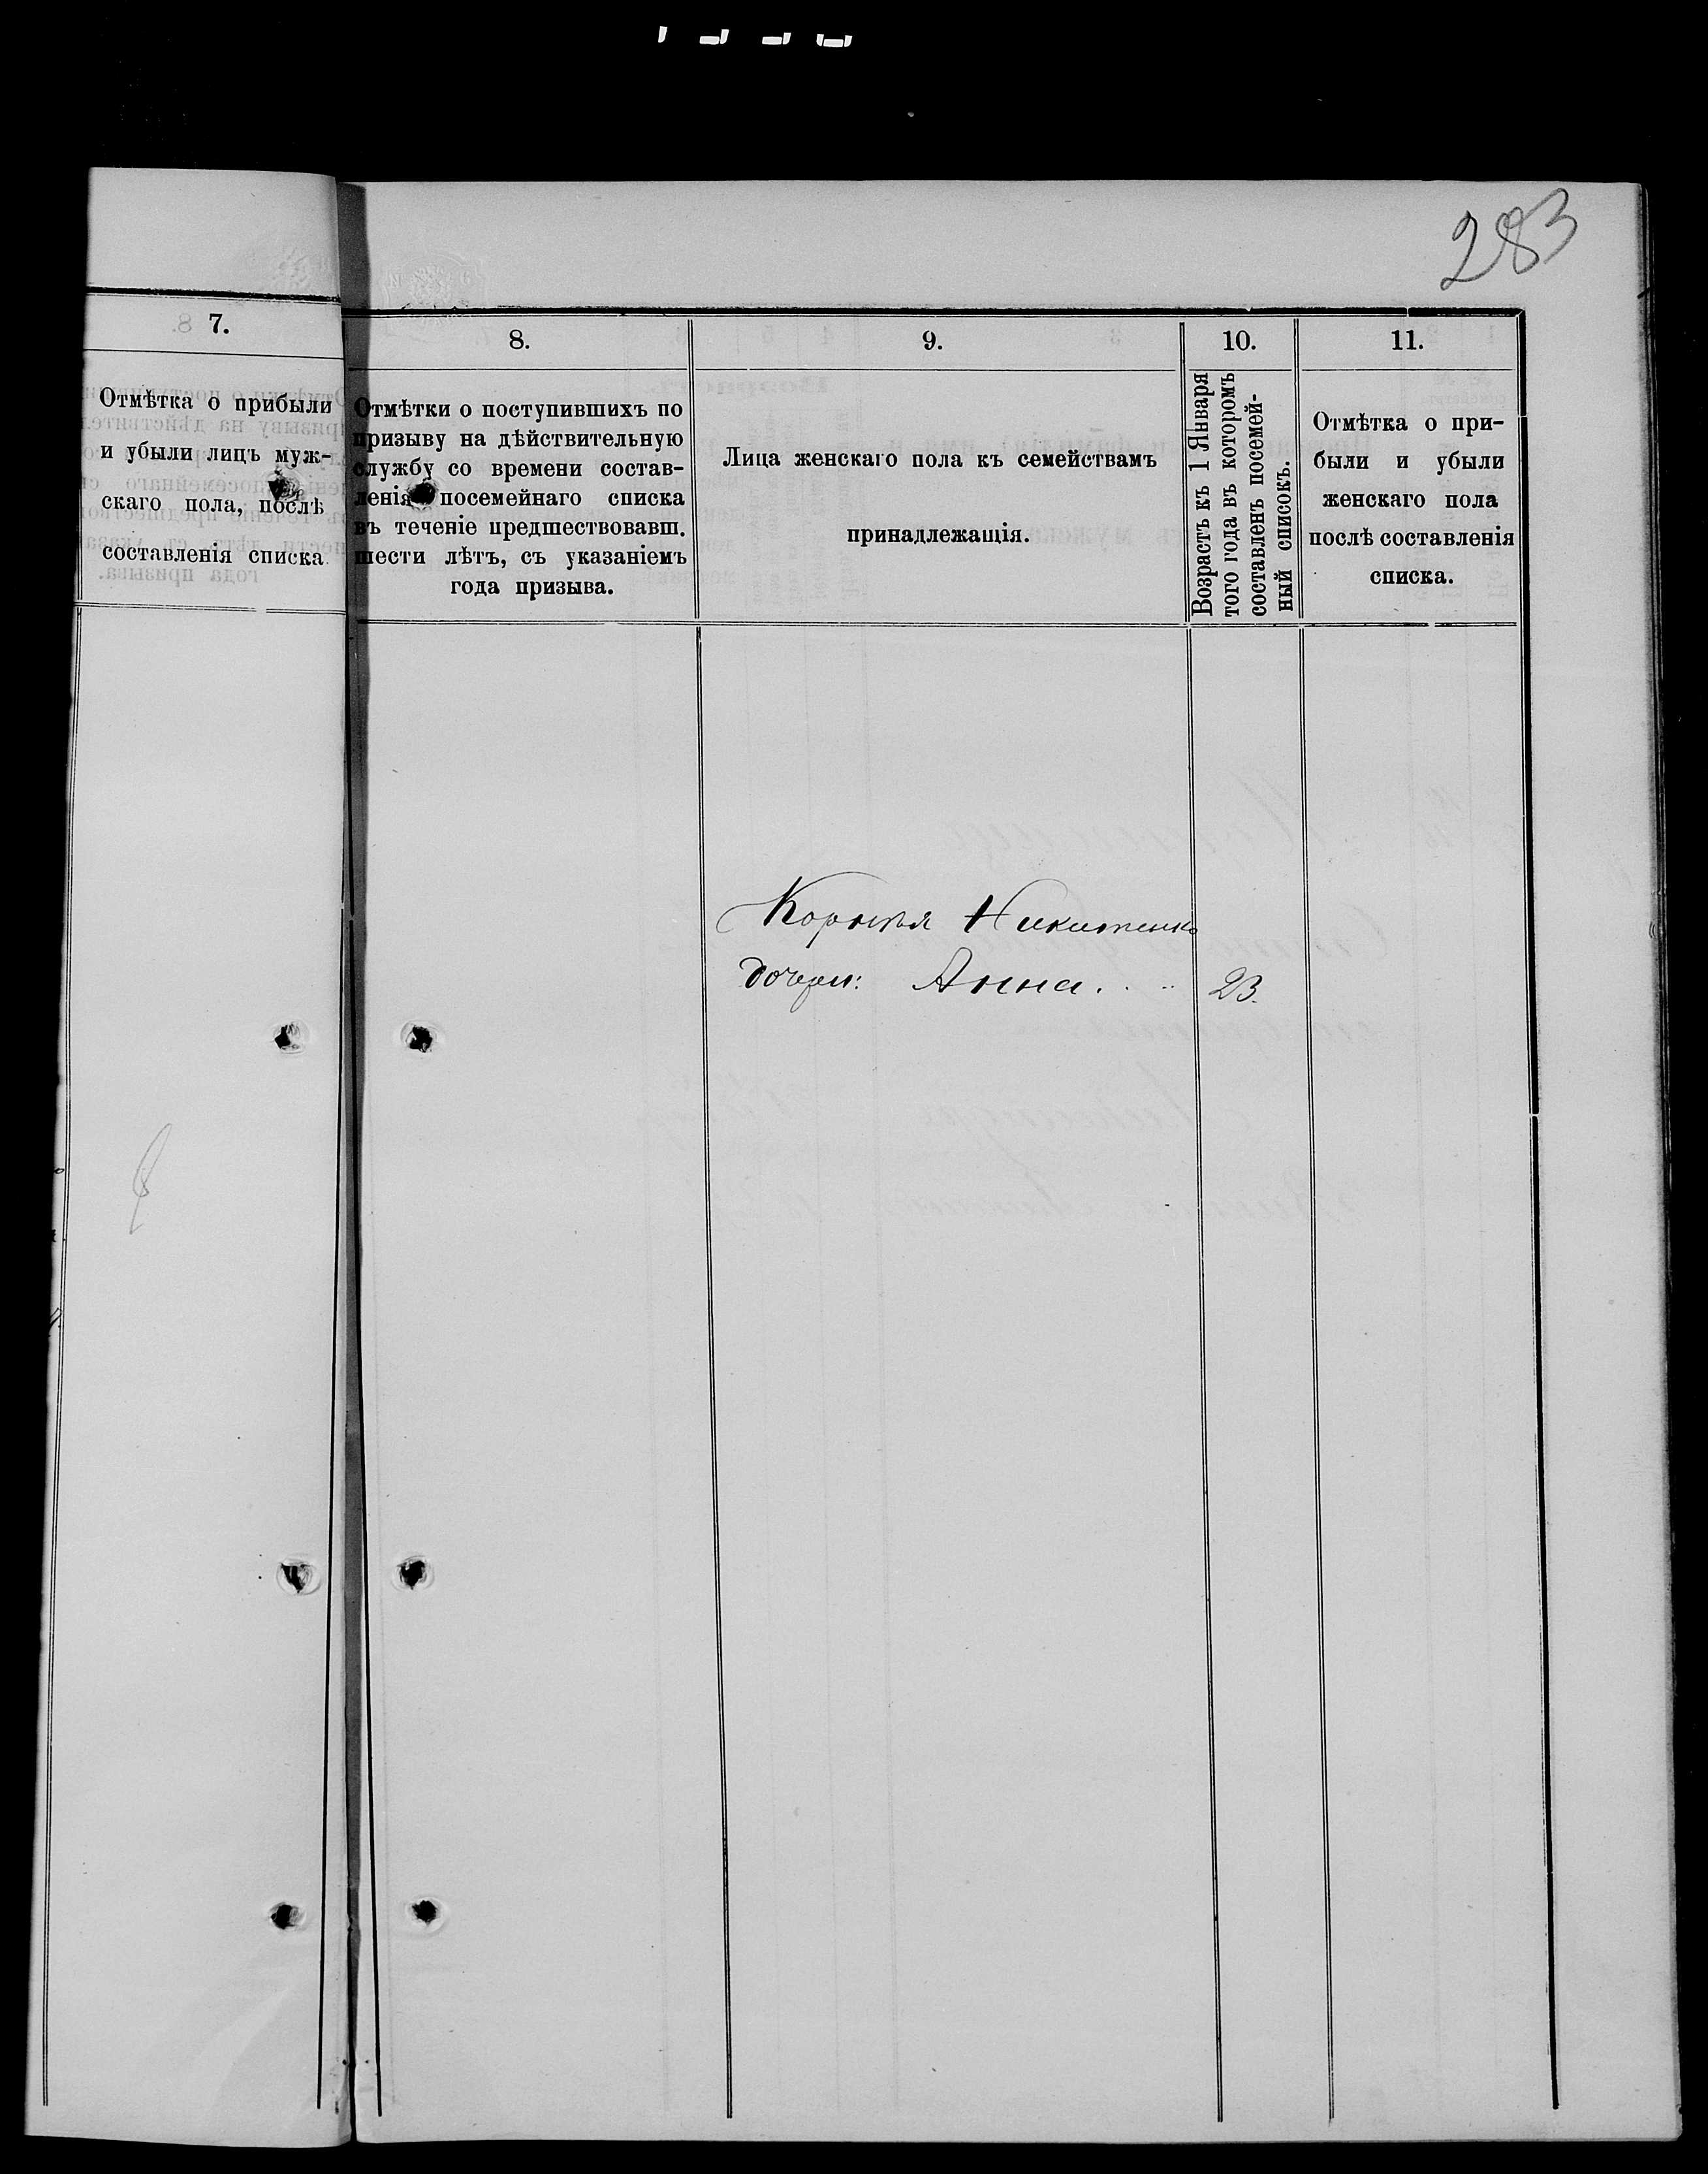 283
7.
Отмѣтка о прибыли
и убыли лицъ муж-
скаго пола, послѣ
составленія списка
8.
Отмѣтки о поступившихъ по
призыву на дѣйствительную
службу со времени состав-
ленія посемейнаго списка
въ теченіе предшествовавш.
шести лѣтъ, съ указаніемъ
года призыва.
9.
Лица женскаго пола къ семействамъ
принадлежащія.
10.
Возрастъ къ 1 Января
того года въ которомъ
составленъ посемей-
ный списокъ.
11.
Отмѣтка о при-
были и убыли
женскаго пола
послѣ составленія
списка.
Корнѣя Никитенко
дочери: Анна . . .. 23.